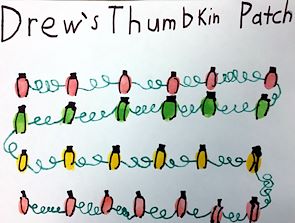 Drew's Thumbkin Patch